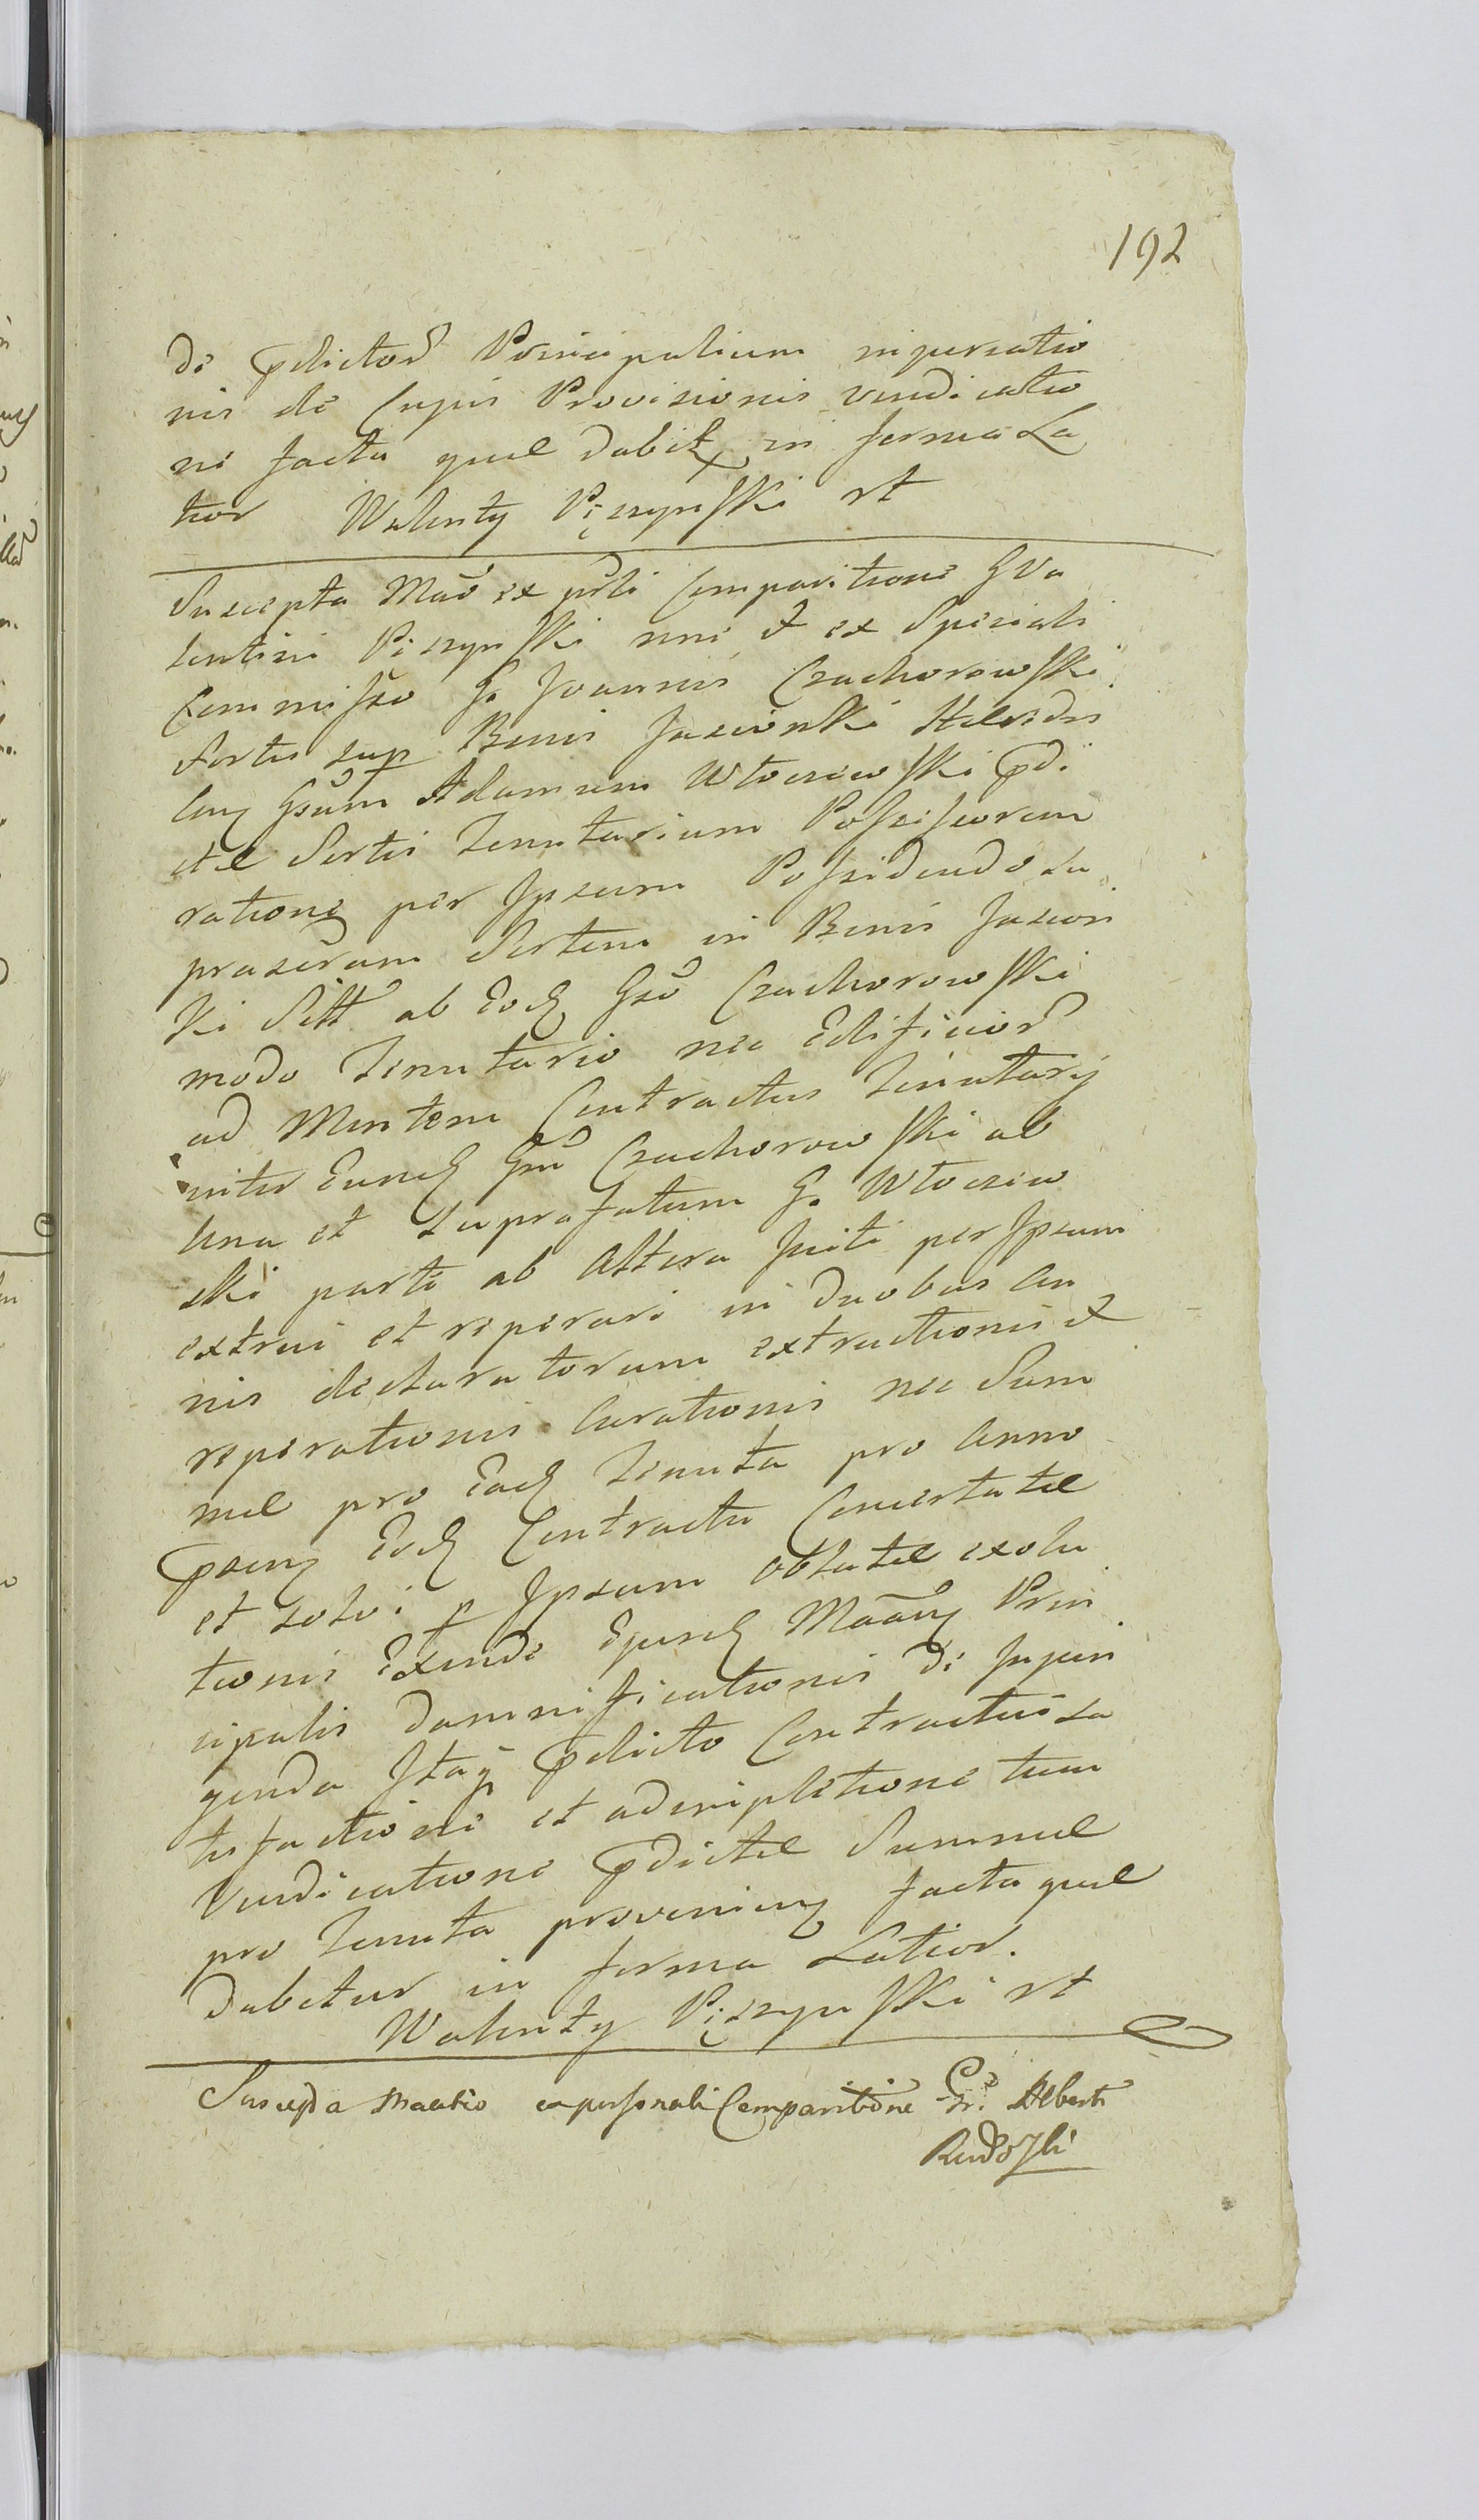 192
de pdictor Principalium inpersatio
nis de Cujus Provisionis vendicatio
ne facta quae dabit in forma La
tior Walenty Pięczyński rt
Suscepta Mao ex psli Comparitione G Va
lentini Pięczyński nni et ex Speciali
Commisso G. Joannis Czachorowski
Sortis sup Bonis Jasionki Haeredis
Gsum Adamum Włoszewski pdi
ctae Sortis Tenutarium Possessorem
ratione per Ipsum Possidendo su
praseram Sortem in Bonis Jasion
ki Sitt ab Eod Gso Czachorowski
modo Tenutario nec Edificior
ad Mentem Contractus Tenutarij
inter Eund Gsu Czachorowski ab
Una et suprafatum G. Włoszew
ski parte ab Altera Initi per Ipsum
extrui et reperari in Duobus An
nis declaratorum extructionis et
reperationis Curationis nec Sum
mae pro Ead Tenuta pro Anno
Eod Contractu Concertatae
et solvi p Ipsum oblatae exolu
tionis Exinde Ejusd Prin
cipalis Damnificationis De Injun
genda pdicto Contractui sa
tisfactione et adimpletione tum
Vendicatione pdictae Summae
pro Tenuta facta quae
Dabetur in forma Latior.
Walenty Pięczyński rt
Suscepta Maatio ex personali Comparitione Gr. Alberti
Rudozki